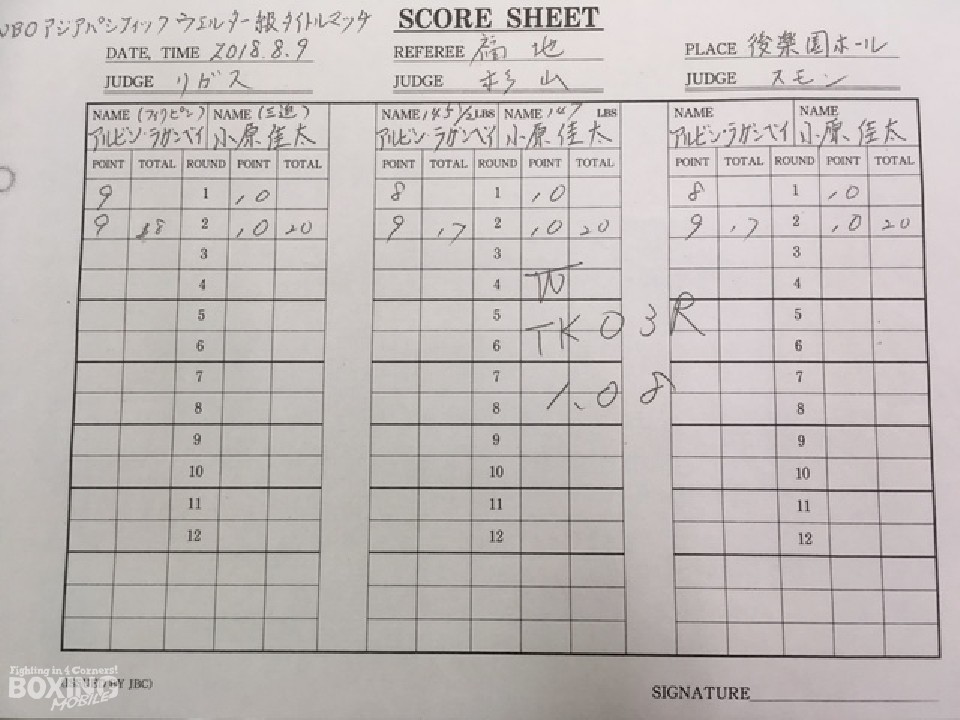 WBOアジアパシフィックウェルター級タイトルマッチ
SCORE SHEET
DATE, TIME 2018.8.9 REFEREE 福地 PLACE 後楽園ホール
JUDGE リガス JUDGE 杉山 JUDGE スモン
NAME (フィリピン) NAME (三迫) NAME 145 1/2 LBS NAME 147 LBS NAME NAME
アルビン・ラガンベイ 小原佳太 アルビン・ラガンベイ 小原佳太 アルビン・ラガンベイ 小原佳太
POINT TOTAL ROUND POINT TOTAL POINT TOTAL ROUND POINT TOTAL POINT TOTAL ROUND POINT TOTAL
9 1 10 8 1 10 8 1 10
9 18 2 10 20 9 17 2 10 20 9 17 2 10 20
3 3 3
4 4 W 4
5 5 TKO 3R 5
6 6 6
7 7 7
8 8 1.08 8
9 9 9
10 10 10
11 11 11
12 12 12
Fighting in 4 Corners!
BOXING
MOBILE
(ISSUED BY JBC)
SIGNATURE